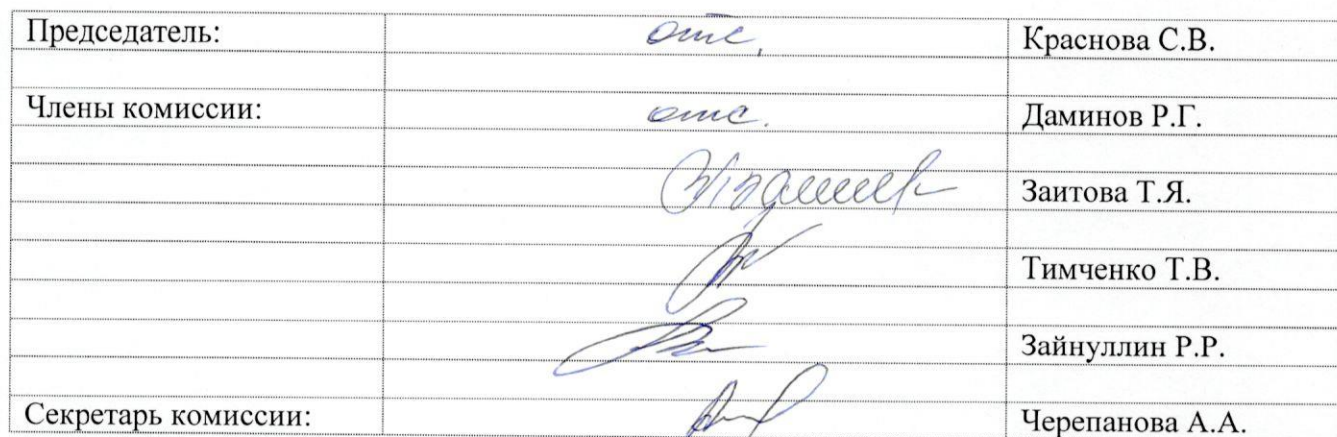 Председатель: отс. Краснова С.В.
Члены комиссии: отс. Даминов Р.Г.
Заитова Т.Я.
Тимченко Т.В.
Зайнуллин Р.Р.
Секретарь комиссии: Черепанова А.А.